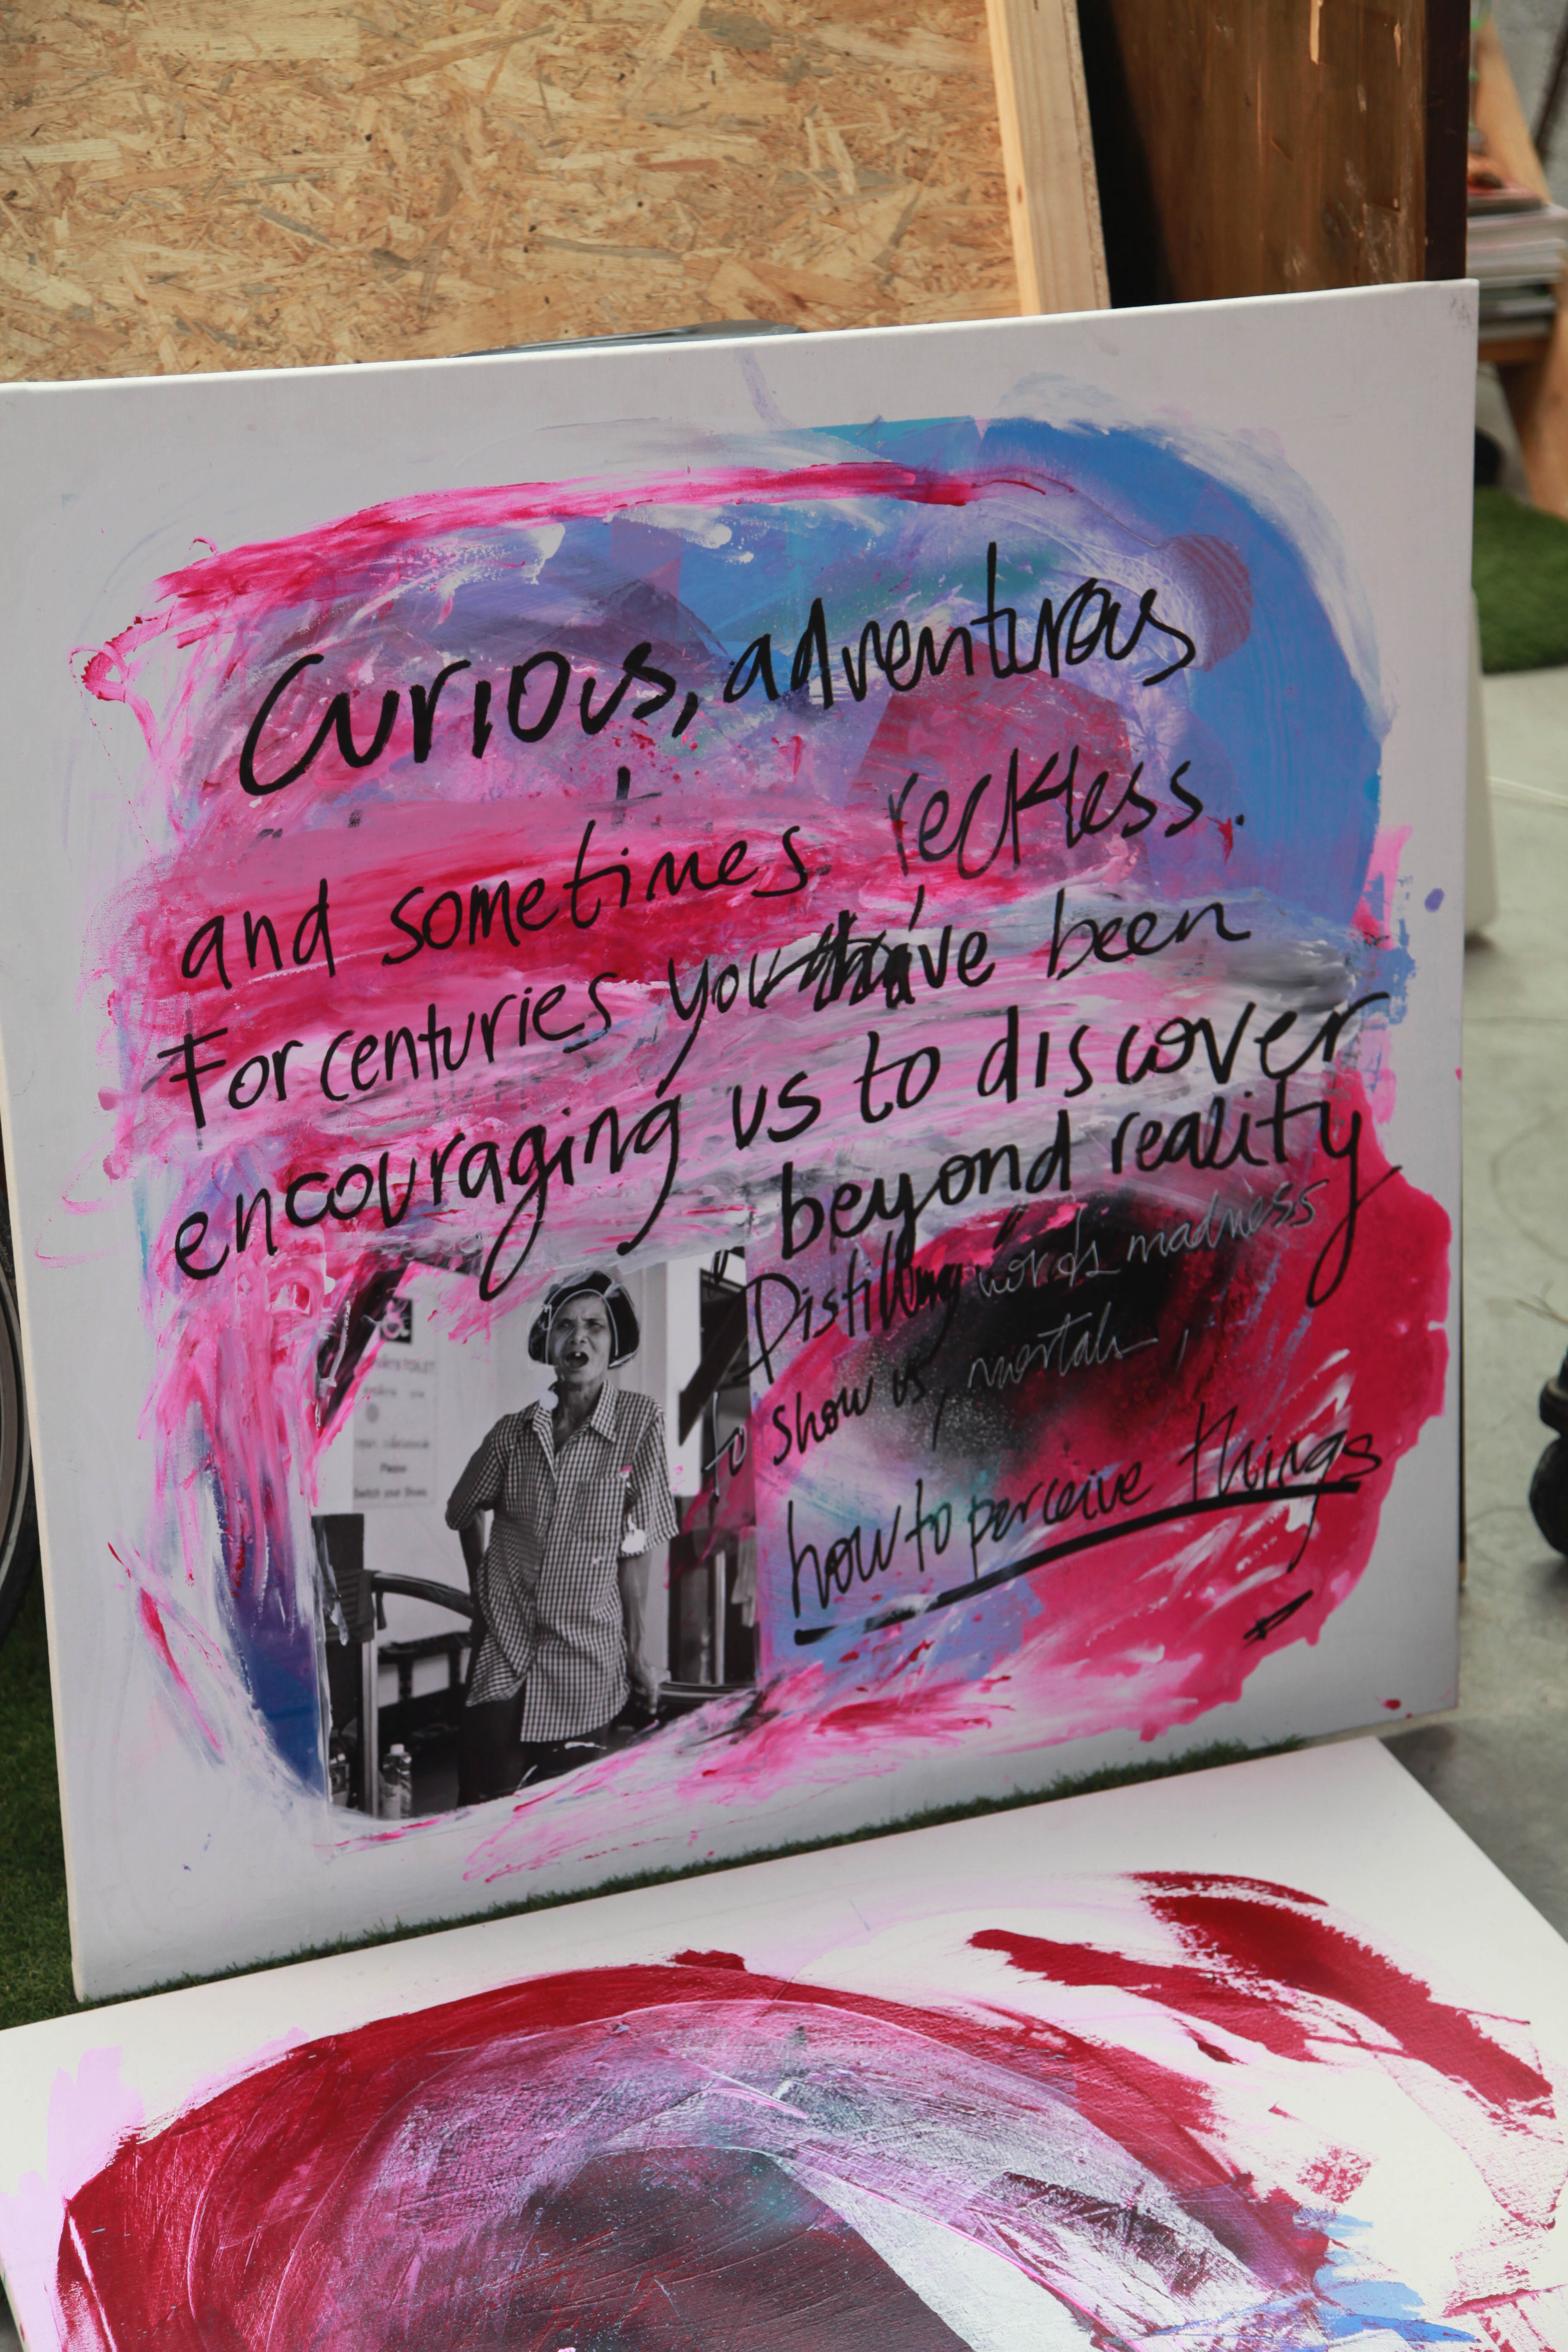 Curious, adventurous
and sometimes reckless.
For centuries you've been
encouraging us to discover
beyond reality
Distilling words madness
to show us, mortals,
how to perceive things
TOILET
Please
Switch your Shoes